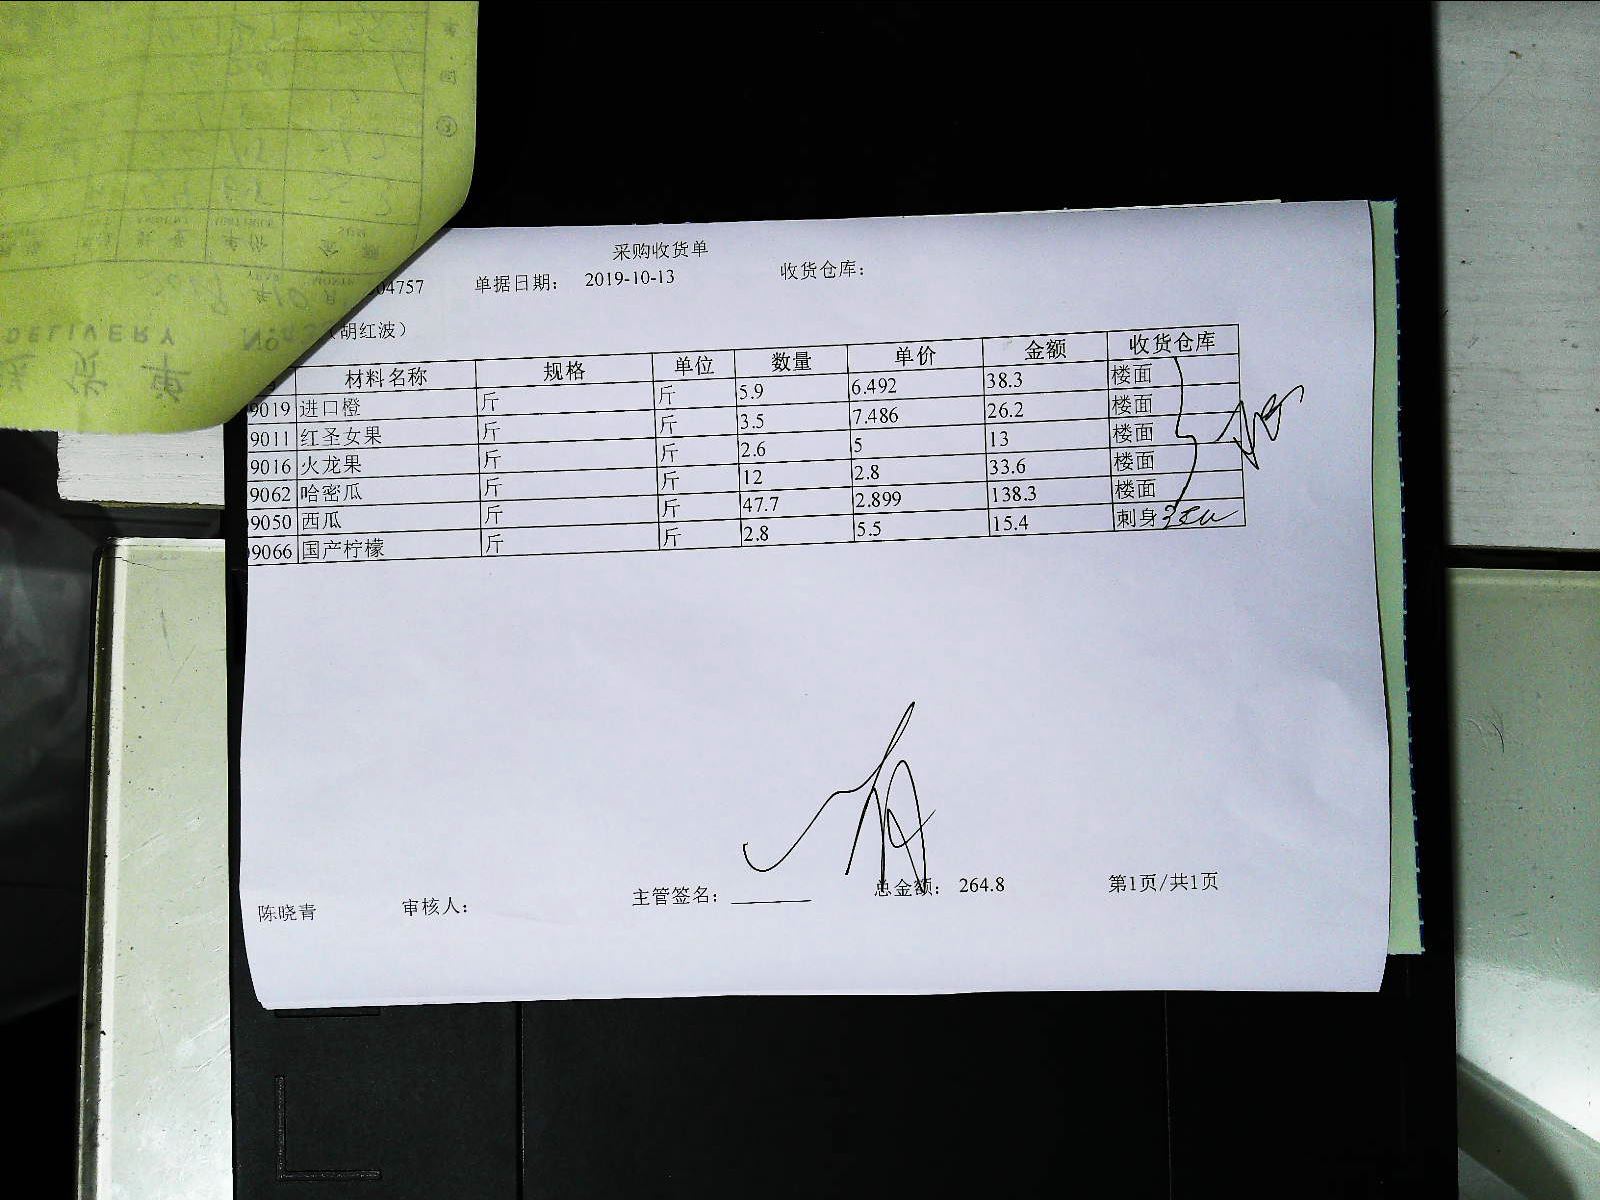 采购收货单
04757 单据日期： 2019-10-13 收货仓库：
（胡红波）
材料名称 规格 单位 数量 单价 金额 收货仓库
9019 进口橙 斤 斤 5.9 6.492 38.3 楼面
9011 红圣女果 斤 斤 3.5 7.486 26.2 楼面
9016 火龙果 斤 斤 2.6 5 13 楼面
9062 哈密瓜 斤 斤 12 2.8 33.6 楼面
9050 西瓜 斤 斤 47.7 2.899 138.3 楼面
9066 国产柠檬 斤 斤 2.8 5.5 15.4 刺身
陈晓青 审核人： 主管签名： 总金额： 264.8 第1页/共1页
DELIVERY
货 单